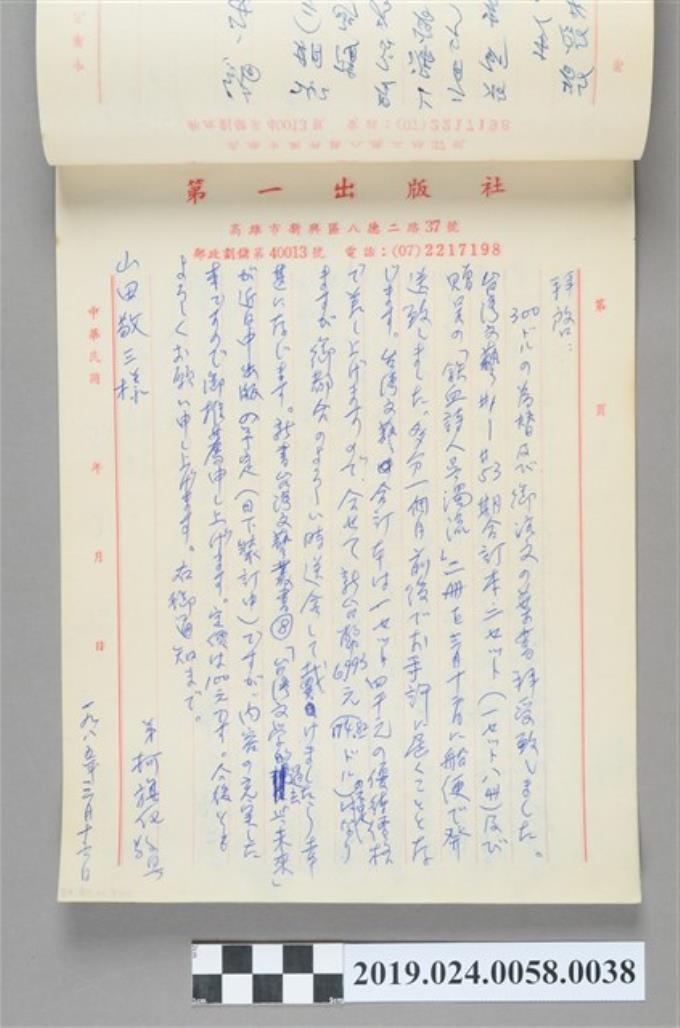 第一出版社
高雄市新興區八德二路37號
郵政劃儲第40013號 電話：(07)2217198
第 頁
拝啓：
300ドルの為替及び御注文の葉書拝受致しました。
台湾文藝#1—#53期合訂本二セット（一セット八冊）及び
贈呈の「鉄血詩人吳濁流」二冊を三月十一日に船便で発
送致しました。多分一個月前後でお手許に届くこととな
ります。台湾文藝合訂本は一セット四千元の優待價格
で差し上げますので、合せて新台幣
ますが御都合のよろしい時送金して戴けましたら幸
甚に存じます。新書台湾文藝叢書⑧「台湾文学的過去與未來」
が近日中出版の予定（目下装訂中）ですが、内容の充実した
本ですので御推薦申し上げます。定價は100元です。今後とも
よろしくお願い申し上げます。右御通知まで。
山田敬三様
弟柯旗化敬具
一九八五年三月十二日
中華民國 年 月 日
2019.024.0058.0038